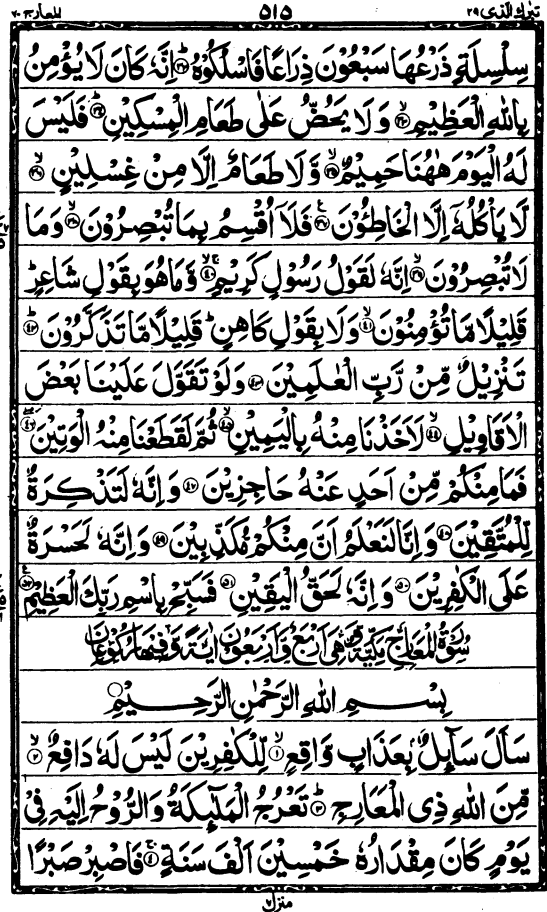 تبٰرك الذي ٢٩ ٥١٥ المعارج ٧٠
سِلْسِلَةٍ ذَرْعُهَا سَبْعُوْنَ ذِرَاعًا فَاسْلُكُوْهُ ؕ﴿۳۲﴾ اِنَّهٗ كَانَ لَا يُؤْمِنُ
بِاللّٰهِ الْعَظِيْمِ ۙ﴿۳۳﴾ وَلَا يَحُضُّ عَلٰى طَعَامِ الْمِسْكِيْنِ ؕ﴿۳۴﴾ فَلَيْسَ
لَهُ الْيَوْمَ هٰهُنَا حَمِيْمٌ ۙ﴿۳۵﴾ وَّلَا طَعَامٌ اِلَّا مِنْ غِسْلِيْنٍ ۙ﴿۳۶﴾
لَّا يَاْكُلُهٗۤ اِلَّا الْخَاطِـُٔوْنَ ﴿۳۷﴾ ع فَلَاۤ اُقْسِمُ بِمَا تُبْصِرُوْنَ ۙ﴿۳۸﴾ وَمَا
لَا تُبْصِرُوْنَ ۙ﴿۳۹﴾ اِنَّهٗ لَقَوْلُ رَسُوْلٍ كَرِيْمٍ ۚۙ﴿۴۰﴾ وَّمَا هُوَ بِقَوْلِ شَاعِرٍ ؕ
قَلِيْلًا مَّا تُؤْمِنُوْنَ ۙ﴿۴۱﴾ وَلَا بِقَوْلِ كَاهِنٍ ؕ قَلِيْلًا مَّا تَذَكَّرُوْنَ ؕ﴿۴۲﴾
تَنْزِيْلٌ مِّنْ رَّبِّ الْعٰلَمِيْنَ ﴿۴۳﴾ وَلَوْ تَقَوَّلَ عَلَيْنَا بَعْضَ
الْاَقَاوِيْلِ ۙ﴿۴۴﴾ لَاَخَذْنَا مِنْهُ بِالْيَمِيْنِ ۙ﴿۴۵﴾ ثُمَّ لَقَطَعْنَا مِنْهُ الْوَتِيْنَ ۖ﴿۴۶﴾
فَمَا مِنْكُمْ مِّنْ اَحَدٍ عَنْهُ حَاجِزِيْنَ ﴿۴۷﴾ وَاِنَّهٗ لَتَذْكِرَةٌ
لِّلْمُتَّقِيْنَ ﴿۴۸﴾ وَاِنَّا لَنَعْلَمُ اَنَّ مِنْكُمْ مُّكَذِّبِيْنَ ﴿۴۹﴾ وَاِنَّهٗ لَحَسْرَةٌ
عَلَى الْكٰفِرِيْنَ ﴿۵۰﴾ وَاِنَّهٗ لَحَقُّ الْيَقِيْنِ ﴿۵۱﴾ فَسَبِّحْ بِاسْمِ رَبِّكَ الْعَظِيْمِ ﴿۵۲﴾ ع
سُوْرَةُ الْمَعَارِجِ مَكِّيَّةٌ وَّهِيَ اَرْبَعٌ وَّاَرْبَعُوْنَ اٰيَةً وَّفِيْهَا رُكُوْعَانِ
بِسْمِ اللّٰهِ الرَّحْمٰنِ الرَّحِيْمِ
سَاَلَ سَآئِلٌۢ بِعَذَابٍ وَّاقِعٍ ۙ﴿۱﴾ لِّلْكٰفِرِيْنَ لَيْسَ لَهٗ دَافِعٌ ۙ﴿۲﴾
مِّنَ اللّٰهِ ذِى الْمَعَارِجِ ؕ﴿۳﴾ تَعْرُجُ الْمَلٰٓئِكَةُ وَالرُّوْحُ اِلَيْهِ فِيْ
يَوْمٍ كَانَ مِقْدَارُهٗ خَمْسِيْنَ اَلْفَ سَنَةٍ ۚ﴿۴﴾ فَاصْبِرْ صَبْرًا
منزل ٧